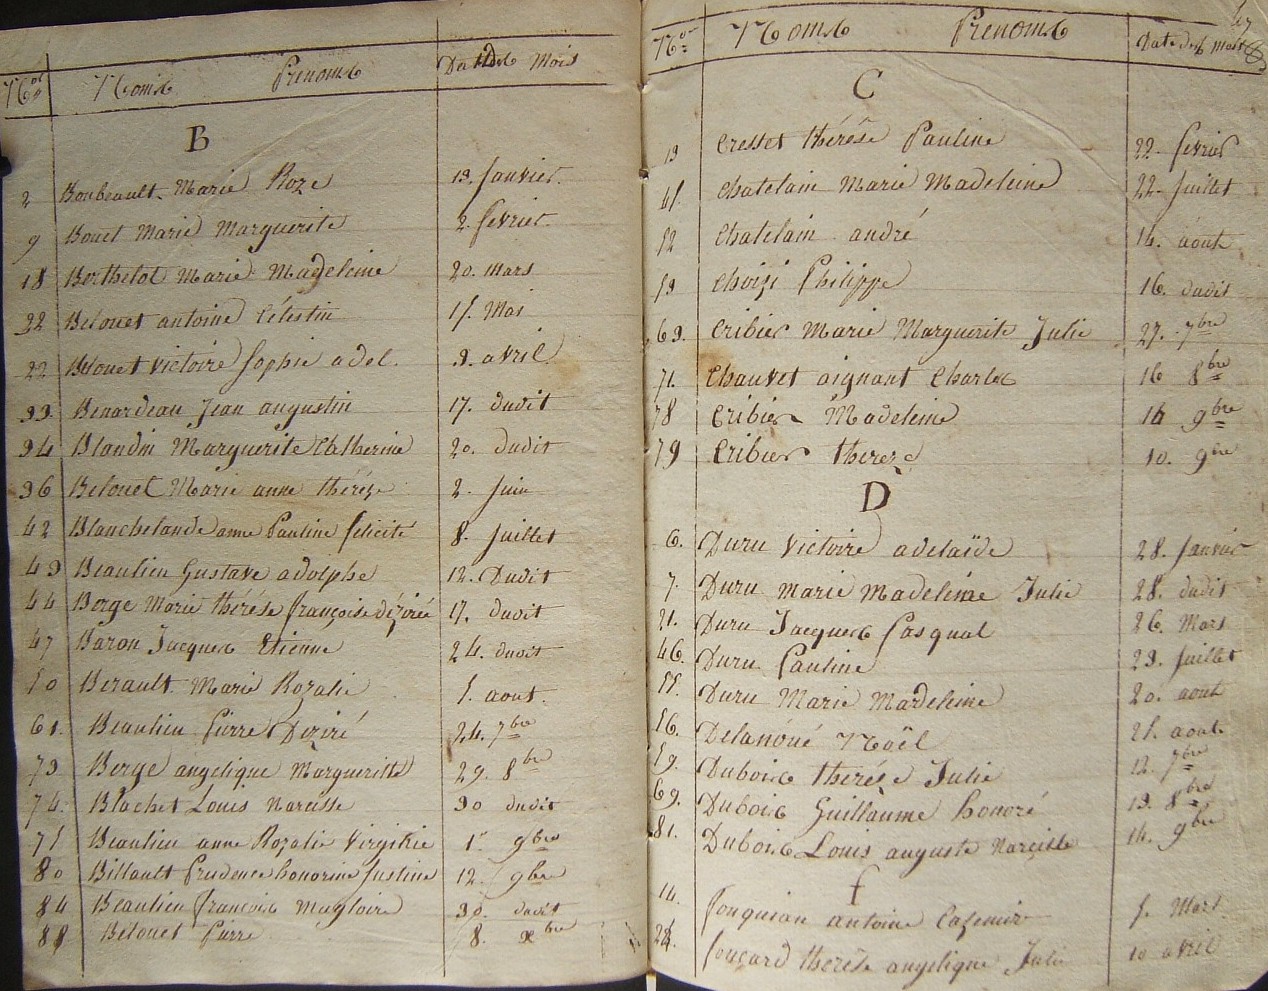 Nos Noms Prenoms Dates Mois
B
2 Boubeault Marie Roze 13. Janvier
9 Bouet Marie Marguerite 2. fevrier
18 Berthelot Marie Madeleine 20. mars
22 Belouet antoine Célestin 15. Mai
22 Belouet victoire Sophie adel. 3. avril
33 Benardeau Jean augustin 17. dudit
34 Blandin Marguerite Catherine 20. dudit
36 Belouet Marie anne thérèse 2. Juin
42 Blanchelande anne Pauline felicité 8. Juillet
43 Beaulieu Gustave adolphe 12. Dudit
44 Berge Marie thérése françoise dézirée 17. dudit
47 Baron Jacques Etienne 24. dudit
50 Berault Marie Rozalie 5. aout.
61. Beaulieu Pierre Deziré 24. 7bre
73 Berge angelique Marguerite 29. 8bre
74. Blachet Louis Narcisse 30 dudit
75 Beaulieu anne Rozalie Virginie 1er 9bre
80 Billault Prudence honorine Justine 12. 9bre
84 Beaulieu françois Magloire 30. dudit
88 Belouet Pierre 8. Xbre
Nos Noms Prenoms Date des mois
C
13 Cresset thérése Pauline 22. fevrier
45. Chatelain Marie Madeleine 22. Juillet
52 Chatelain andré 14. août
53 Choizi Philippe 16. dudit
63. Cribier Marie Marguerite Julie 27. 7bre
71. Chauvet aignant Charles 16 8bre
78 Cribier Madeleine 16 9bre
79 Cribier thereze 10. 9bre
D
6. Duru victoire adelaïde 28. Janvier
7. Duru marie Madeleine Julie 28. dudit
21. Duru Jacques Pasqual 26. Mars
46. Duru Pauline 23. Juillet
55. Duru Marie Madeleine 20. aout
56. Delanoué Noël 25. aout
59. Dubois therése Julie 12. 7bre
69. Dubois Guillaume honoré 13. 8bre
81. Dubois Louis auguste Narcisse 14. 9bre
f
14. fouquian antoine Casimir 5. Mars
24. foucard therése angelique Julie 10 avril